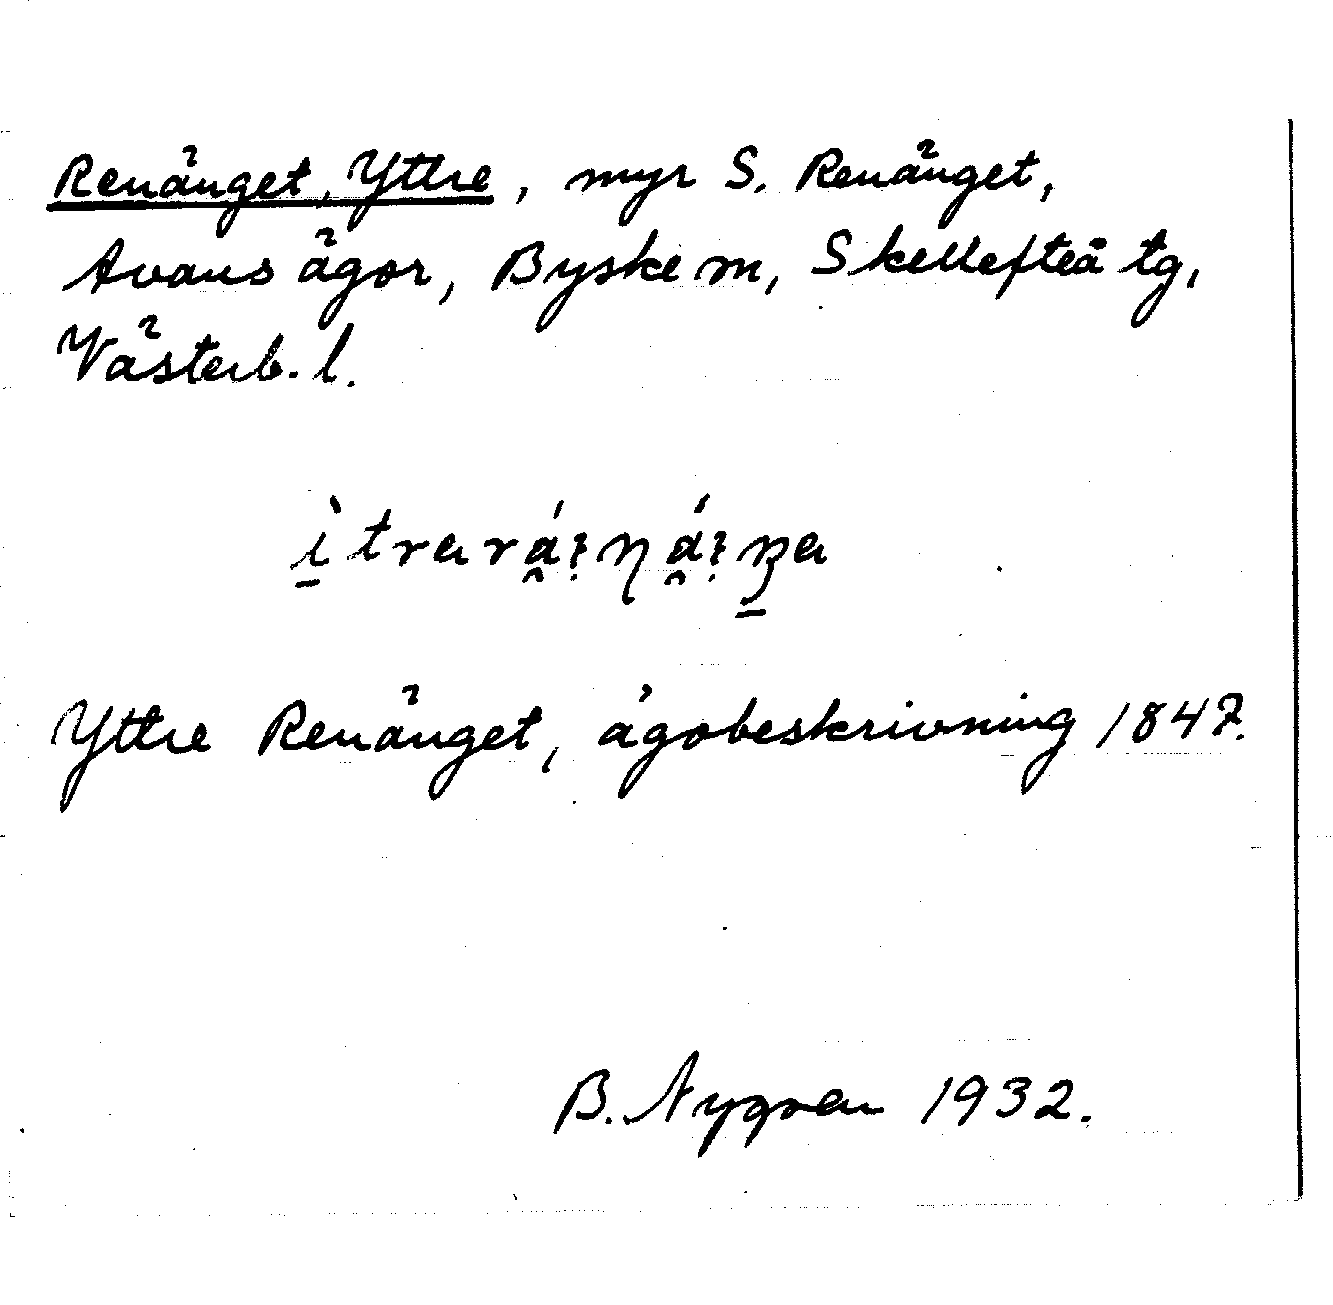 Renänget, Yttre, myr S. Renänget,
Avans ägor, Byske m, Skellefteå tg,
Västerb. l.
Yttre Renänget, ägobeskrivning 1847.
B. Nygren 1932.